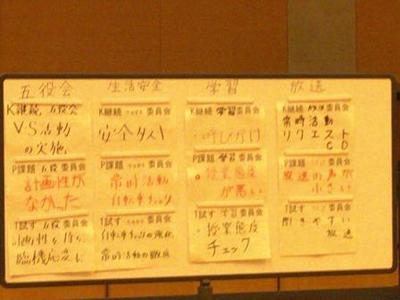 五役会
K継続 五役会 委員会
VS活動
の実施
P課題 五役 委員会
計画性が
なかった
T試す 五役 委員会
計画性を持ち
臨機応変に
生活安全
K継続 委員会
安全テスト
P課題 委員会
常時活動
自転車チェック
T試す 委員会
自転車チェックの強化
常時活動の徹底
学習
K継続 学習 委員会
呼びかけ
P課題 学習 委員会
授業態度
が悪い
T試す 学習 委員会
授業態度
チェック
放送
K継続 放送 委員会
常時活動
リクエスト
CD
P課題 委員会
放送の声が
小さい
T試す 委員会
聞きやすい
放送